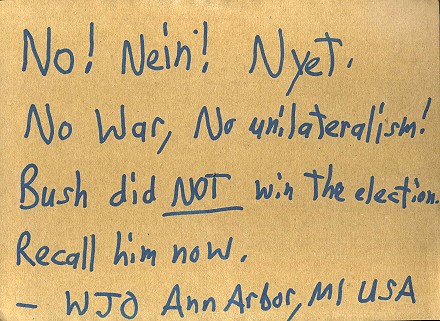 No! Nein! Nyet.
No War, No unilateralism!
Bush did NOT win the election.
Recall him now.
- WJO Ann Arbor, MI USA